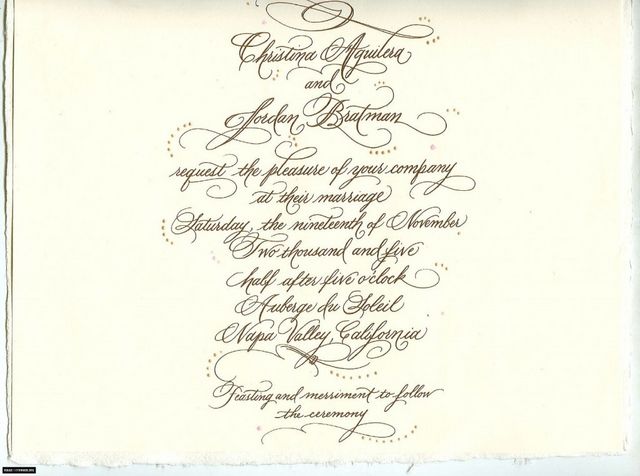 Christina Aguilera
and
Jordan Bratman
request the pleasure of your company
at their marriage
Saturday, the nineteenth of November
Two thousand and five
half after five o'clock
Auberge du Soleil
Napa Valley, California
Feasting and merriment to follow
the ceremony